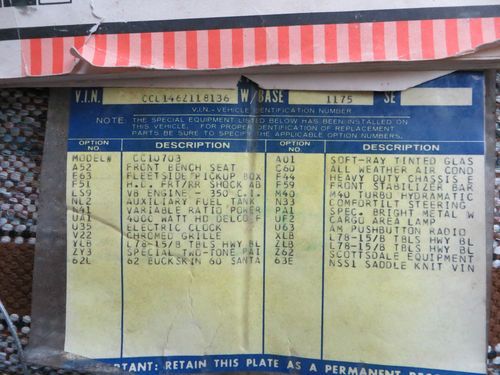 V.I.N. CCL1462118136 W/BASE 1175 SE
V.I.N.-VEHICLE IDENTIFICATION NUMBER
NOTE: THE SPECIAL EQUIPMENT LISTED BELOW HAS BEEN INSTALLED ON
THIS VEHICLE. FOR PROPER IDENTIFICATION OF REPLACEMENT
PARTS BE SURE TO SPECIFY THE APPLICABLE OPTION NUMBERS.
OPTION NO. DESCRIPTION OPTION NO. DESCRIPTION
MODEL# CC10703 A01 SOFT-RAY TINTED GLAS
A52 FRONT BENCH SEAT C60 ALL WEATHER AIR COND
E63 FLEETSIDE PICKUP BOX F44 HEAVY DUTY CHASSIS E
F51 H.D. FRT/RR SHOCK AB F59 FRONT STABILIZER BAR
LS9 V8 ENGINE - 350 C.I. M40 TURBO HYDRAMATIC
NL2 AUXILIARY FUEL TANK N33 COMFORTILT STEERING
N41 VARIABLE RATIO POWER PA1 SPEC. BRIGHT METAL W
UA1 4000 WATT HD DELCO F UF2 CARGO AREA LAMP
U35 ELECTRIC CLOCK U63 AM PUSHBUTTON RADIO
V22 CHROMED GRILLE XLB L78-15/B TBLS HWY BL
YLB L78-15/B TBLS HWY BL ZLB L78-15/B TBLS HWY BL
ZY3 SPECIAL TWO-TONE PAI Z62 SCOTTSDALE EQUIPMENT
62L 62 BUCKSKIN 60 SANTA 63E NSS1 SADDLE KNIT VIN
TANT: RETAIN THIS PLATE AS A PERMANENT REC